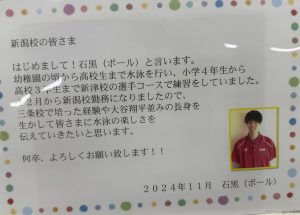 新潟校の皆さま
はじめまして！石黒（ポール）と言います。
幼稚園の頃から高校生まで水泳を行い、小学４年生から
高校３年生まで新津校の選手コースで練習をしていました。
１２月から新潟校勤務になりましたので、
三条校で培った経験や大谷翔平並みの長身を
生かして皆さまに水泳の楽しさを
伝えていきたいと思います。
何卒、よろしくお願い致します！！
２０２４年１１月　石黒（ポール）